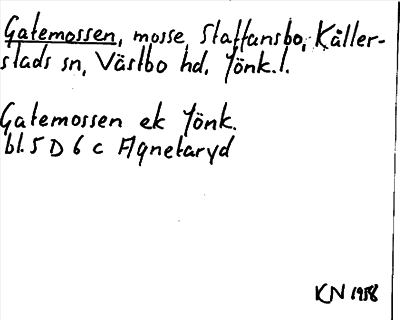 Gatemossen, mosse Staffansbo, Kåller-
stads sn, Västbo hd, Jönk.l.
Gatemossen ek Jönk.
bl. 5 D 6 c Agnetaryd
KN 1958